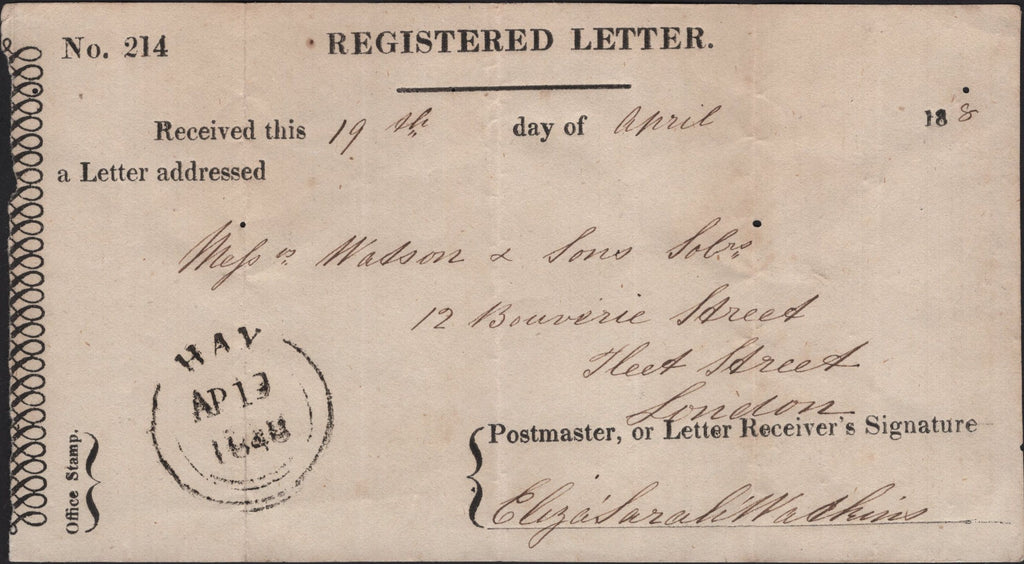 No. 214
REGISTERED LETTER.
Received this 19th day of April 18 8
a Letter addressed
Messrs. Watson & Sons Solrs.
12 Bouverie Street
Fleet Street
London
HAY
AP 19
1848
Office Stamp.
Postmaster, or Letter Receiver's Signature
Eliza Sarah Watkins